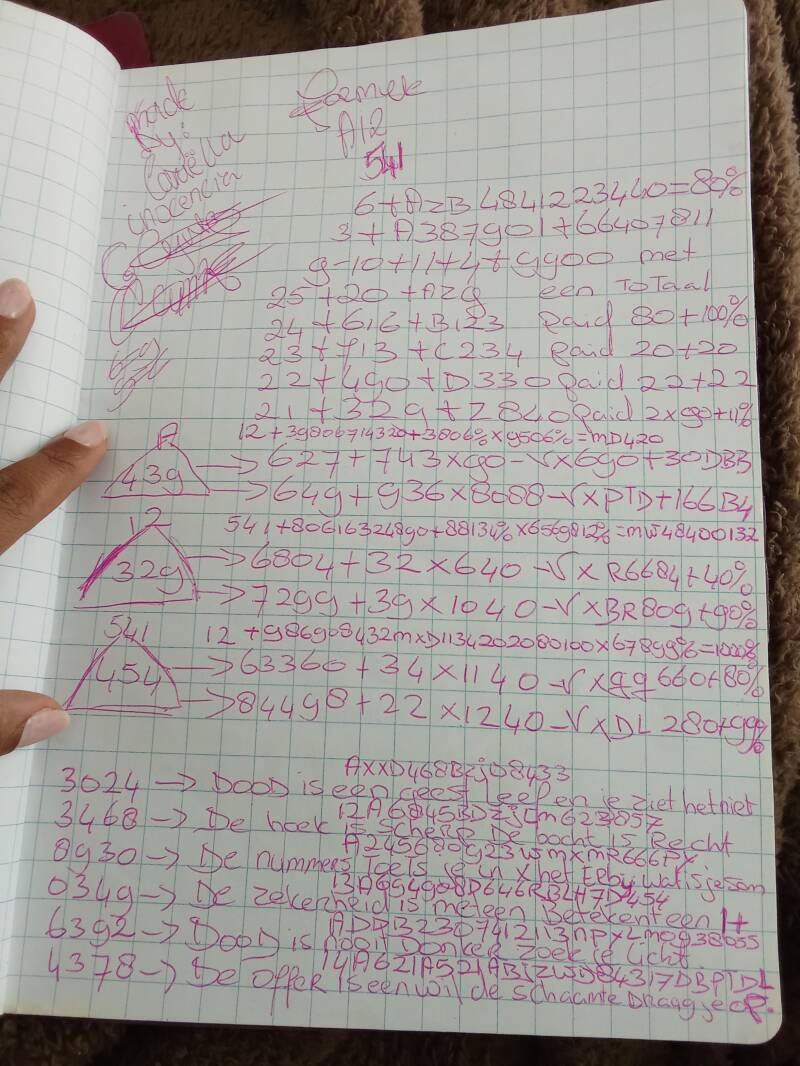 made
By:
Cordella
inocencia
A12
541
6+AzB4841223440=80%
3+A387901+66407811
9-10+11+4+9900 met
25+20+Azg een ToTaal
24+616+B123 Paid 80+100%
23+713+C234 Paid 20+20
22+490+D330 Paid 22+22
21+329+Z840 Paid 2x90+11%
12+39806714320+3806%x9506%=MD420
A
439
→627+743x90-√x690+30DBB
→649+936x8088-√xPTD+166B4
541+80616324890+88134%x6569812%=mw48400132
12
329
→6804+32x640-√xR6684+40%
→7299+39x1040-√xBR809+90%
541
12+986908432mxD1134202080100x67899%=1000%
454
→63360+34x1140-√x99660+80%
→84498+22x1240-√xDL280+99%
AXXD468Bzj08433
3024 → DOOD is een geest leef en je ziet het niet
12A6845BDzjLm623857
3468 → De hoek is scherp De bocht is Recht
A245680923wmxmR666PY
8930 → De nummers Toets je in x het Erby wat is je som
13A994908D646RBL+7D454
0349 → De zekerheid is meteen Betekent een 1+
ADDB2307412113npyLmo938055
6392 → DOOD is nooit Donker zoek je licht
14A621A521ABIZWD84317DBPTDL
4378 → De offer is een wil de schaamte Draag je op.